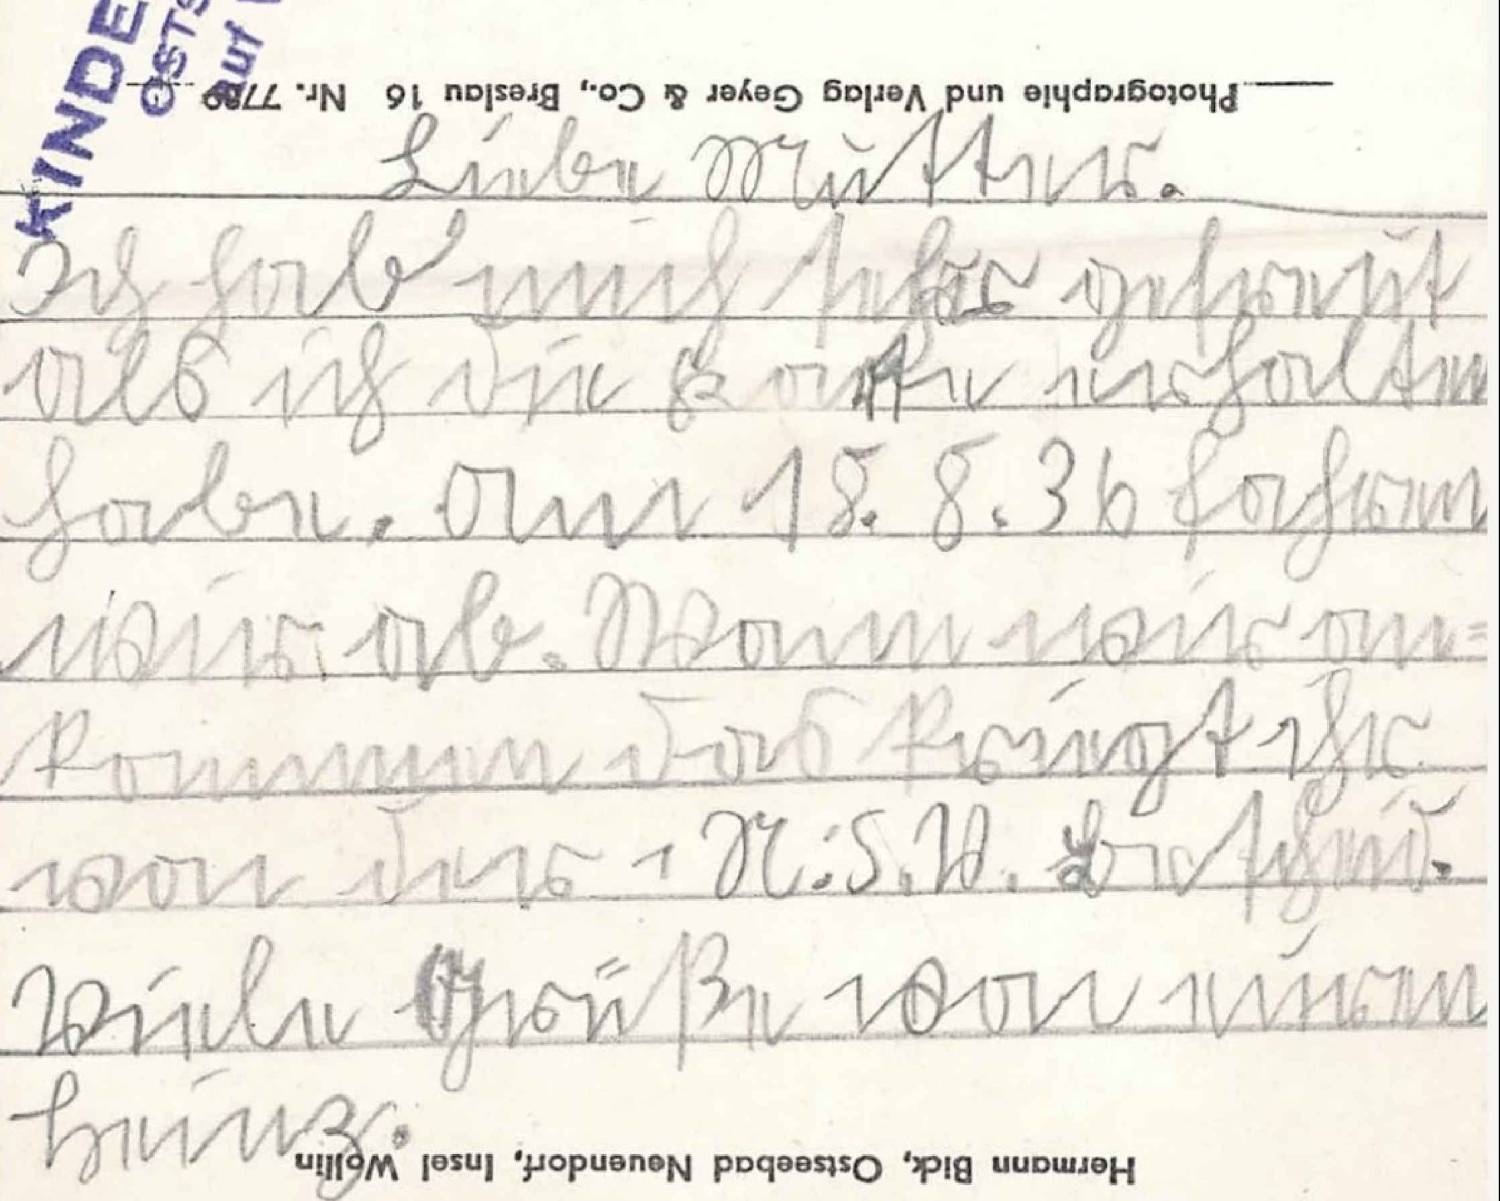 KINDE
OSTS
auf
Photographie und Verlag Geyer & Co., Breslau 16 Nr. 7789
Liebe Mutter.
Ich hab mich sehr gefreut
als ich die Karte erhalten
habe. Am 18.8.36 fahren
wir ab. Wann wir an=
kommen das kriegt ihr
von der N.S.V. bescheid.
Viele Grüße von euren
Heinz.
Hermann Bick, Ostseebad Neuendorf, Insel Wollin